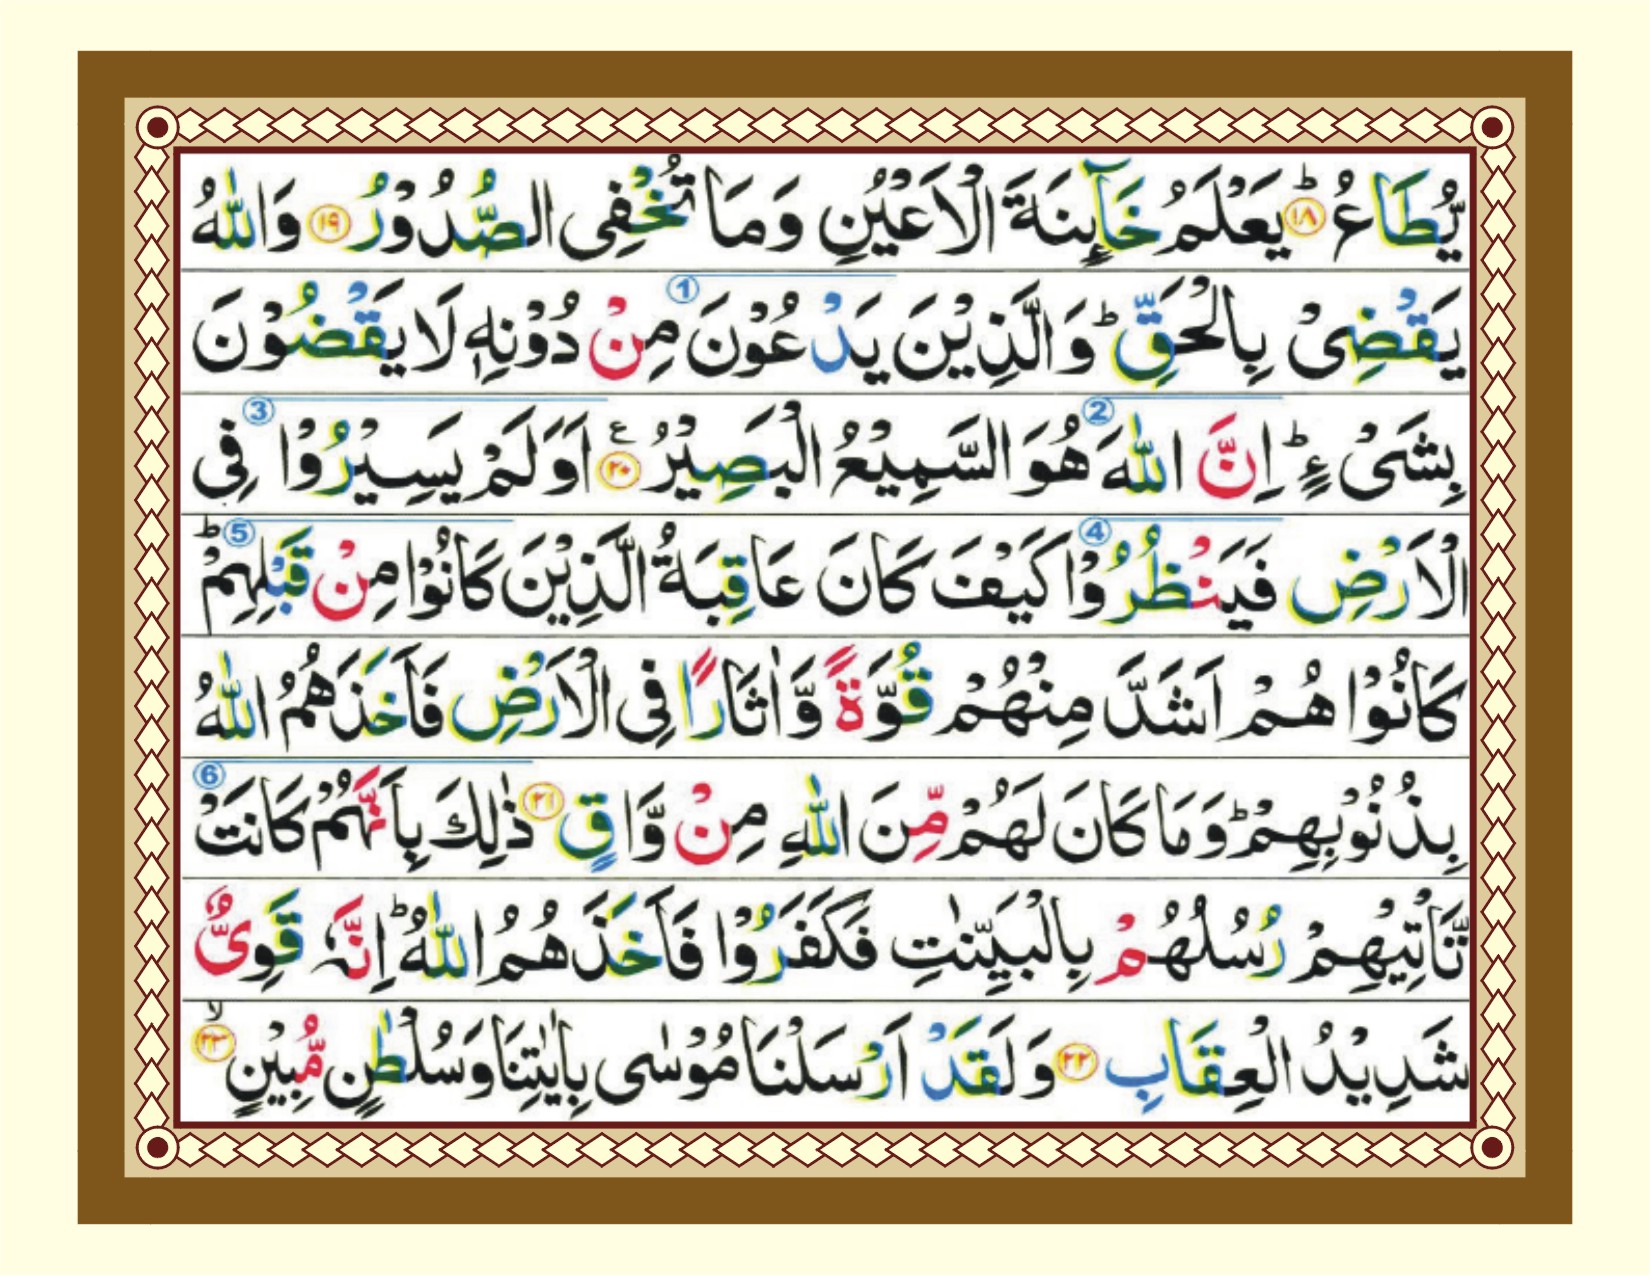 يُّطَاعُ ؕ ﴿۱۸﴾ يَعْلَمُ خَآىِٕنَةَ الْاَعْيُنِ وَمَا تُخْفِى الصُّدُوْرُ ﴿۱۹﴾ وَاللّٰهُ
يَقْضِىْ بِالْحَقِّ ؕ وَالَّذِيْنَ يَدْعُوْنَ ① مِنْ دُوْنِهٖ لَا يَقْضُوْنَ
بِشَىْءٍ ؕ اِنَّ اللّٰهَ ② هُوَ السَّمِيْعُ الْبَصِيْرُ ﴿۲۰﴾ ع اَوَلَمْ يَسِيْرُوْا ③ فِى
الْاَرْضِ فَيَنْظُرُوْا ④ كَيْفَ كَانَ عَاقِبَةُ الَّذِيْنَ كَانُوْا مِنْ قَبْلِهِمْ ؕ ⑤
كَانُوْا هُمْ اَشَدَّ مِنْهُمْ قُوَّةً وَّاٰثَارًا فِى الْاَرْضِ فَاَخَذَهُمُ اللّٰهُ
بِذُنُوْبِهِمْ ؕ وَمَا كَانَ لَهُمْ مِّنَ اللّٰهِ مِنْ وَّاقٍ ﴿۲۱﴾ ذٰلِكَ بِاَنَّهُمْ كَانَتْ ⑥
تَّاْتِيْهِمْ رُسُلُهُمْ بِالْبَيِّنٰتِ فَكَفَرُوْا فَاَخَذَهُمُ اللّٰهُ ؕ اِنَّهٗ قَوِىٌّ
شَدِيْدُ الْعِقَابِ ﴿۲۲﴾ وَلَقَدْ اَرْسَلْنَا مُوْسٰى بِاٰيٰتِنَا وَسُلْطٰنٍ مُّبِيْنٍ ۙ ﴿۲۳﴾